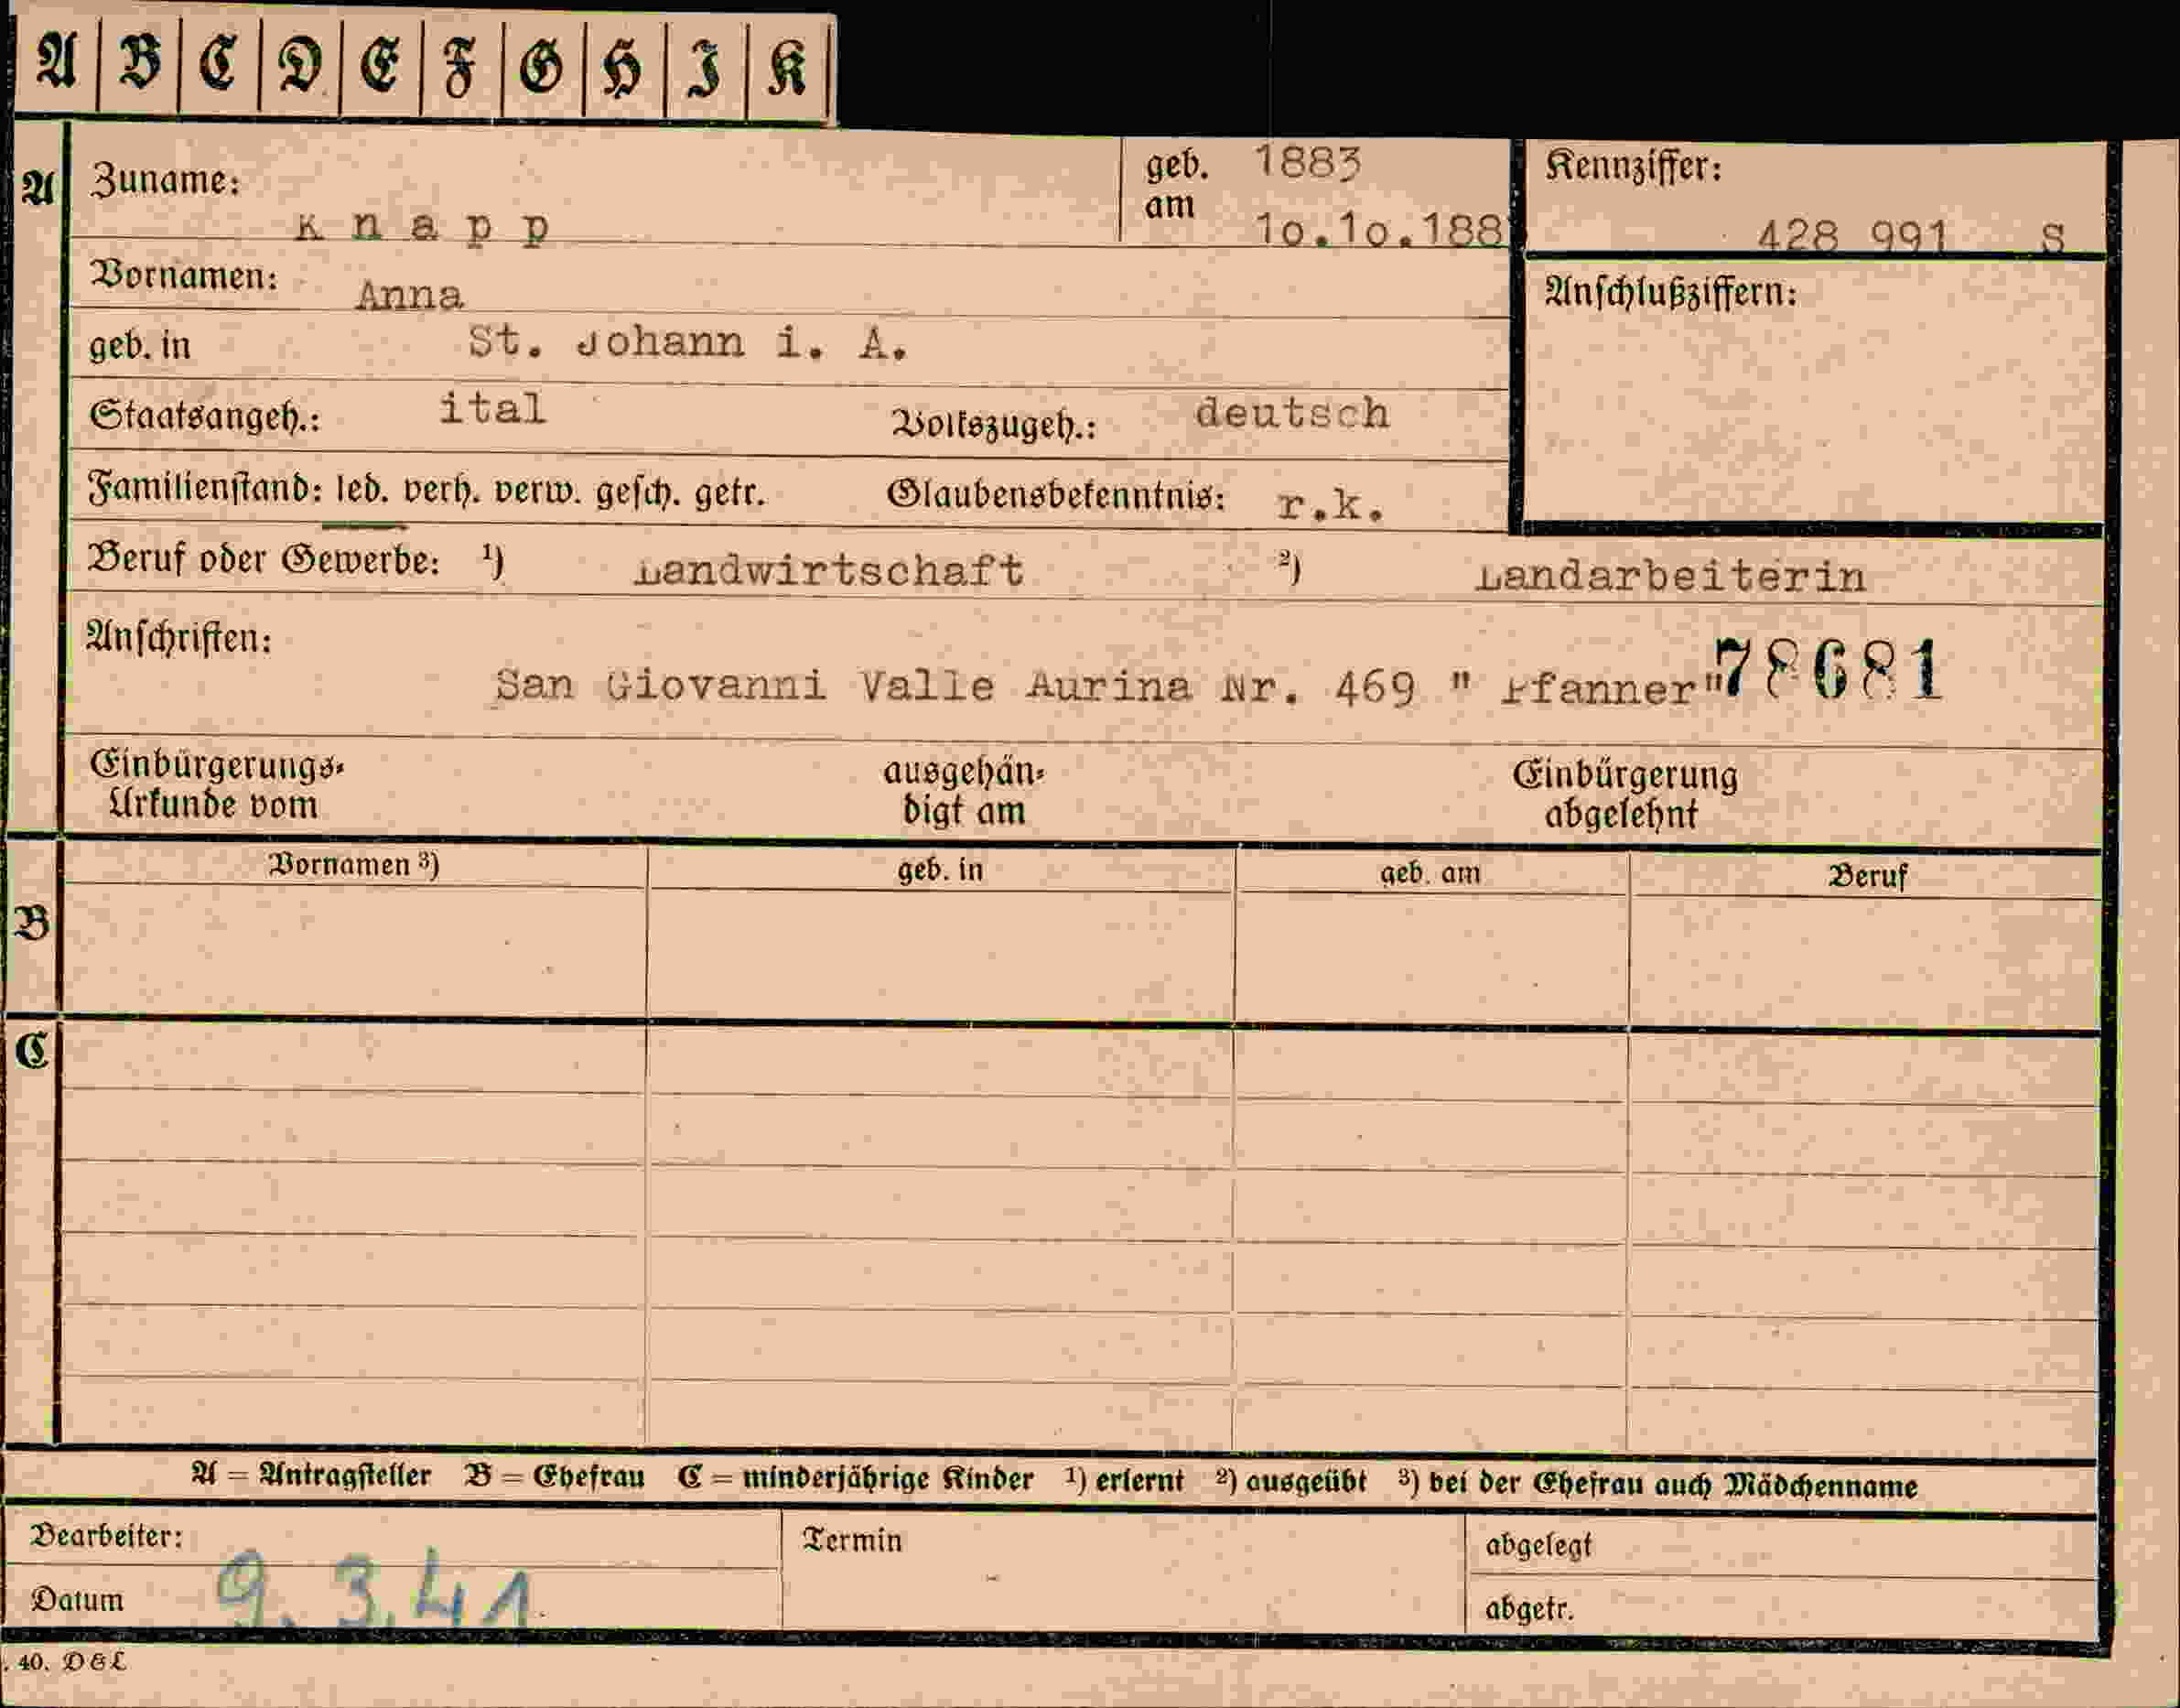 A B C D E F G H I K
A Zuname: K n a p p
geb. am 1883
10.10.188
Kennziffer: 428 991 S
Vornamen: Anna
Anschlußziffern:
geb. in St. Johann i. A.
Staatsangeh.: ital Volkszugeh.: deutsch
Familienstand: led. verh. verw. gesch. getr. Glaubensbekenntnis: r.k.
Beruf oder Gewerbe: 1) Landwirtschaft 2) Landarbeiterin
Anschriften:
San Giovanni Valle Aurina Nr. 469 " Pfanner" 78681
Einbürgerungs- ausgehän- Einbürgerung
Urkunde vom digt am abgelehnt
Vornamen 3) geb. in geb. am Beruf
B
C
A = Antragsteller B = Ehefrau C = minderjährige Kinder 1) erlernt 2) ausgeübt 3) bei der Ehefrau auch Mädchenname
Bearbeiter: Termin abgelegt
Datum 9.3.41 abgetr.
. 40. D & L